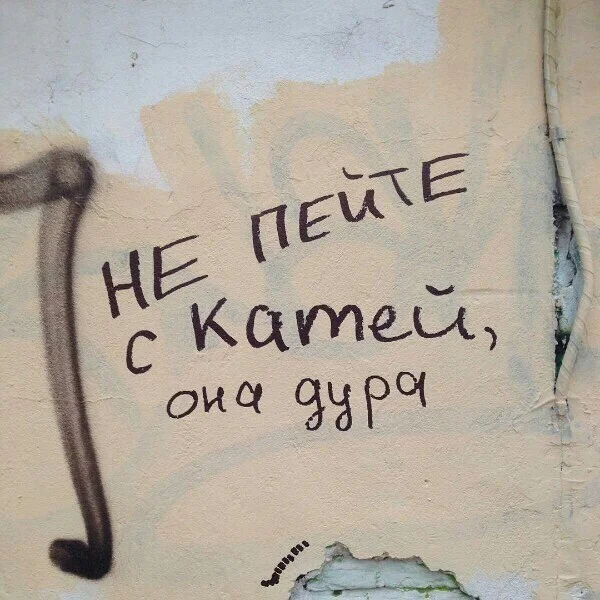 НЕ ПЕЙТЕ
с Катей,
она дура